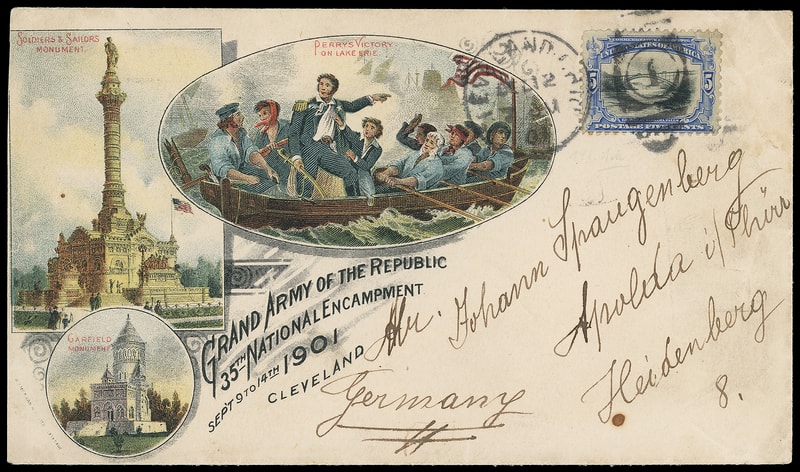 SOLDIERS & SAILORS
MONUMENT.
PERRY'S VICTORY
ON LAKE ERIE.
UNITED STATES OF AMERICA
5 5
POSTAGE FIVE CENTS
GARFIELD
MONUMENT.
GRAND ARMY OF THE REPUBLIC
35TH NATIONAL ENCAMPMENT
SEPT 9 TO 14TH 1901
CLEVELAND
Mr. Johann Spangenberg
Apolda i/Thür
Heidenberg
8.
Germany